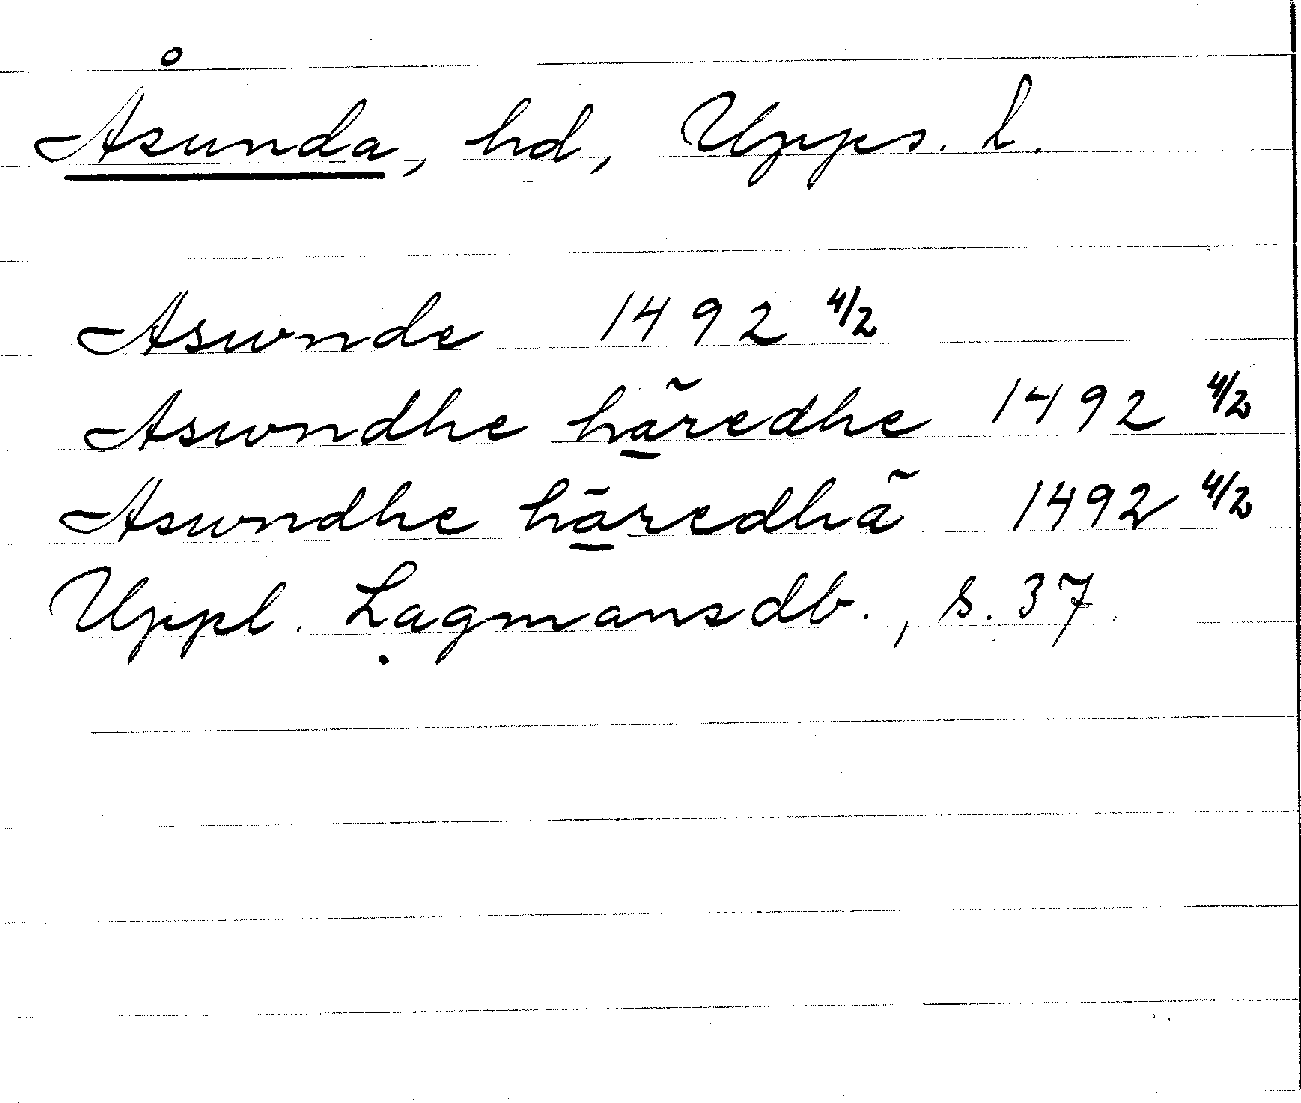 Åsunda, hd, Upps. l.
Aswnde 1492 4/2
Aswndhe hãredhe 1492 4/2
Aswndhe hāredhã 1492 4/2
Uppl. Lagmansdb., s. 37